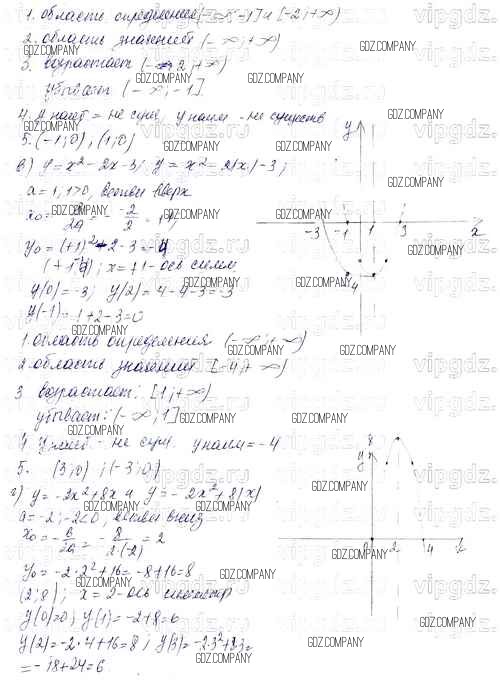 1. области определения (-∞; -1] и [-2; +∞)
2. область значений (-∞; +∞)
3. возрастает (-∞; 2; +∞)
убывает (-∞; -1]
4. У наиб = не сущ, у наим - не существ
5. (-1; 0), (1; 0)
в) y = x² - 2x - 3; y = x² - 2|x| - 3;
a = 1, 1>0, ветви вверх
y₀ = (+1)² - 2 - 3 = -4
x = +1 - ось симм
y(0) = -3; y(2) = 4 - 4 - 3 = -3
y(-1) = 1 + 2 - 3 = 0
1. область определения (-∞; +∞)
2. область значений [-4; +∞)
3. возрастает: [1; +∞)
убывает: (-∞; 1]
4. У наиб - не сущ. у наим = -4
5. (3; 0); (-3; 0)
г) y = -2x² + 8x и y = -2x² + 8|x|
a = -2; -2<0, ветви вниз
x₀ = -в/2a = -8/2·(-2) = 2
y₀ = -2·2² + 16 = -8 + 16 = 8
(2; 8); x = 2 - ось симметр
y(0) = 0; y(1) = -2 + 8 = 6
y(2) = -2·4 + 16 = 8; y(3) = -2·3² + 8·3 =
= -18 + 24 = 6
y
-3 -1 1 3 x
-4
8
y
0 2 4 x
GDZ.COMPANY
vipgdz.ru